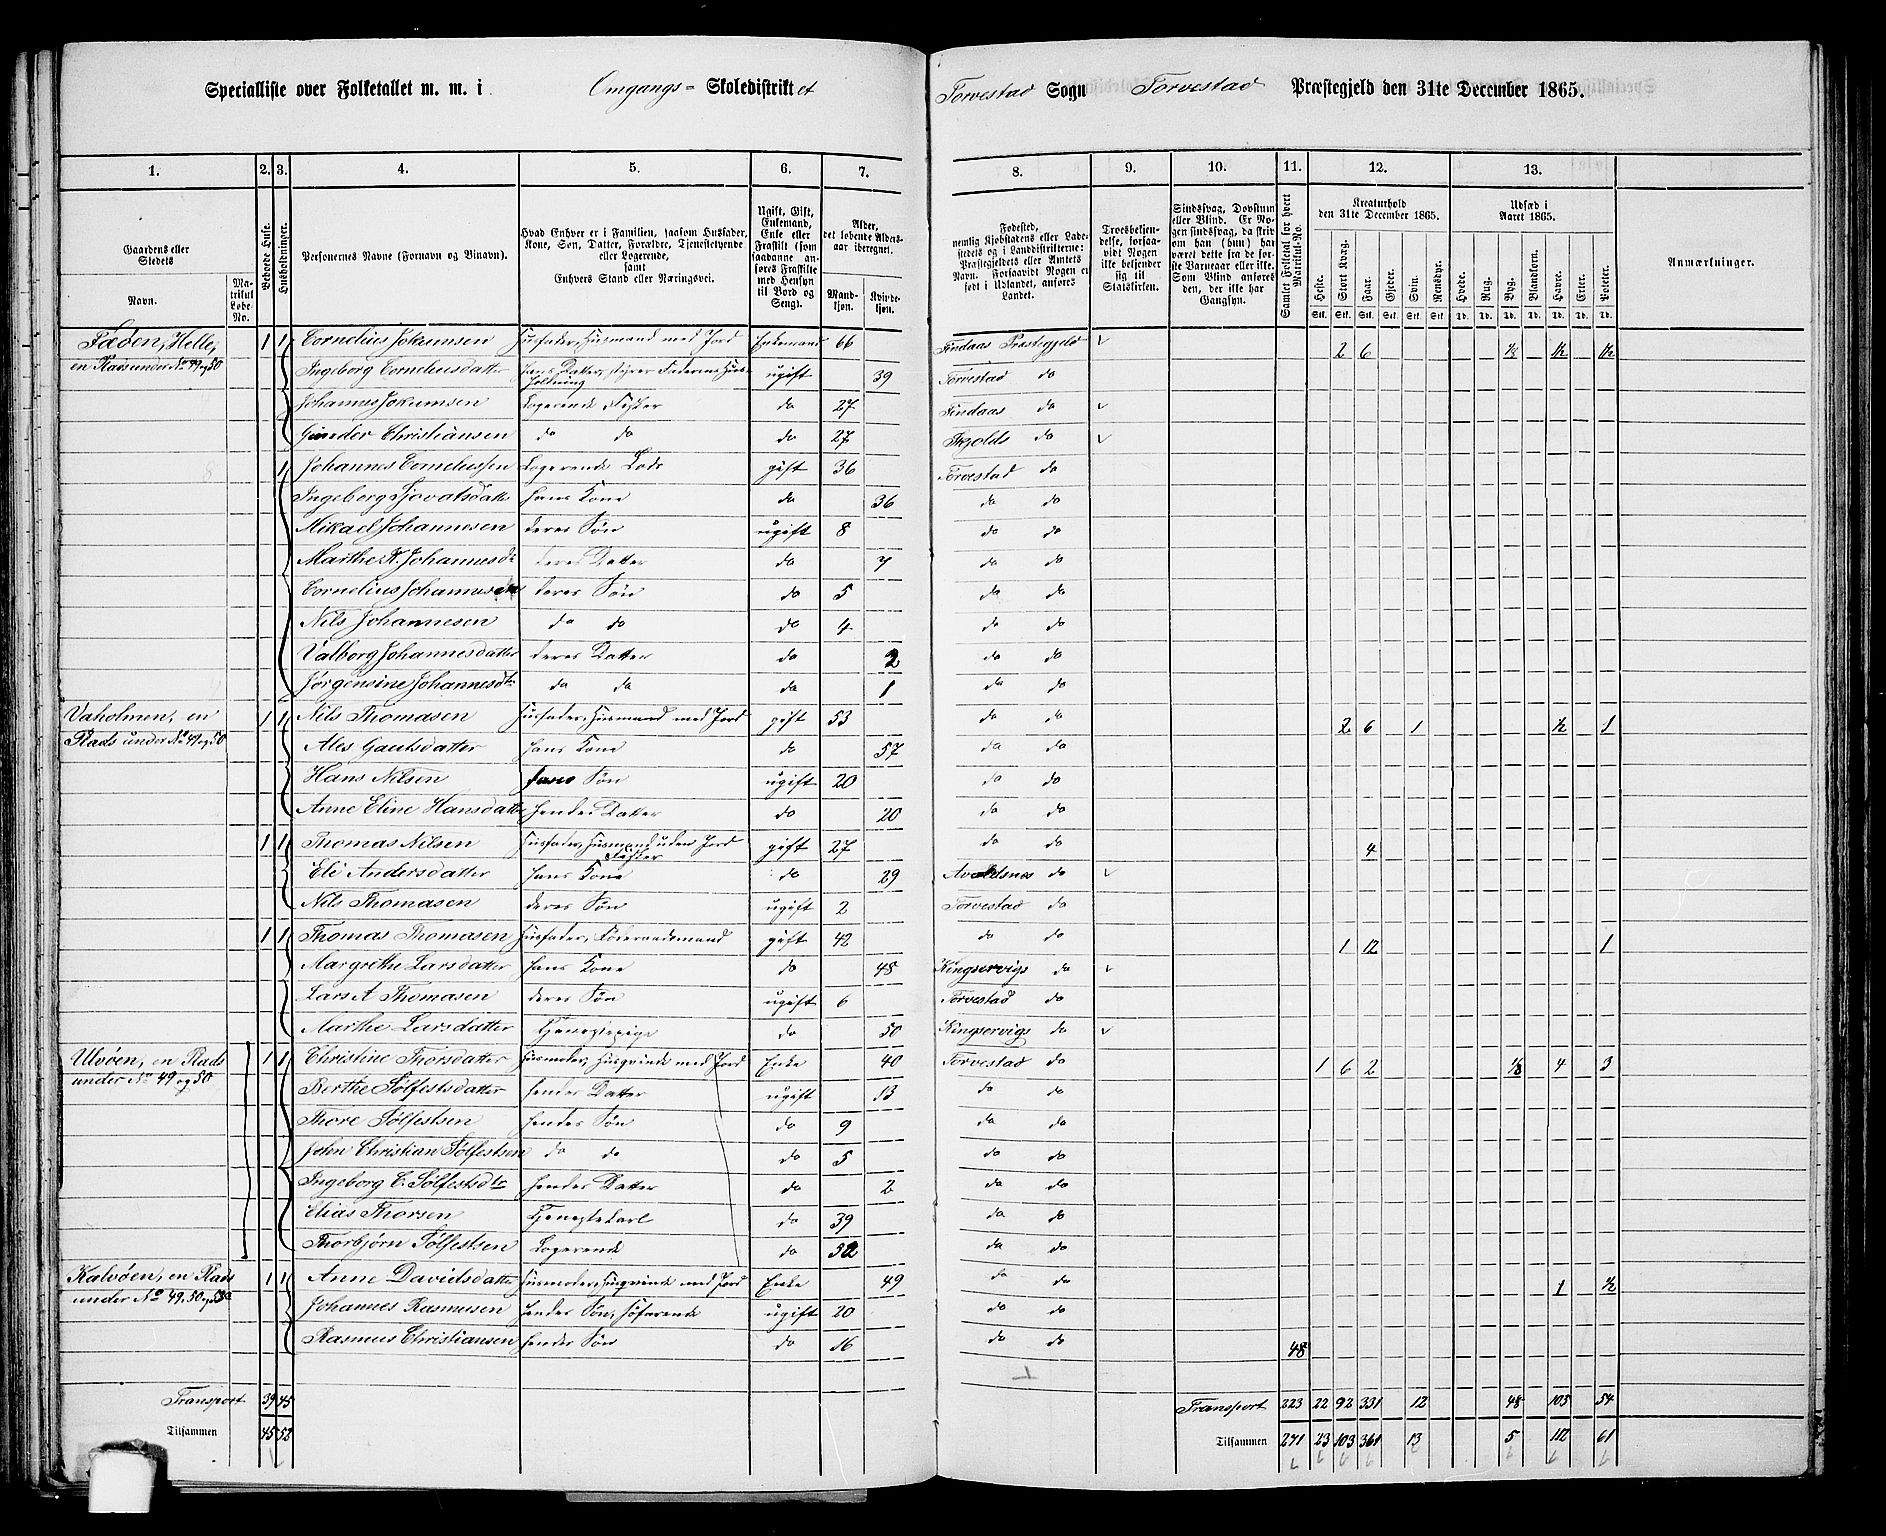 Specialliste over Folketallet m. m. i Omgangs= Skoledistriktet Torvestad Sogn Torvestad Præstegjeld den 31te December 1865.
1. 2. 3. 4. 5. 6. 7. 8. 9. 10. 11. 12. 13.
Gaardens eller Stedets
Navn.
Matrikul Løbe-No.
Beboede Huse.
Husholdninger.
Personernes Navne (Fornavn og Binavn).
Hvad Enhver er i Familien, saasom Husfader, Kone, Søn, Datter, Forældre, Tjenestetyende eller Logerende, samt Enhvers Stand eller Næringsvei.
Ugift, Gift, Enkemand, Enke eller Fraskilt (som saadanne anføres Fraskilte med Hensyn til Bord og Seng).
Alder, det løbende Aldersaar iberegnet.
Mandkjøn. Kvindekjøn.
Fødested, nemlig Kjøbstadens eller Ladestedets og i Landdistrikterne: Præstegjeldets eller Amtets Navn. Forsaavidt Nogen er født i Udlandet, anføres Landet.
Troesbekjendelse, forsaavidt Nogen ikke bekjender sig til Statskirken.
Sindssvag, Døvstum eller Blind. Er Nogen sindssvag, da skriv om han (hun) har været dette fra de første Barneaar eller ikke. Som Blind anføres den, der ikke har Gangsyn.
Samlet Folketal for hvert Matrikul-No.
Kreaturhold den 31te December 1865.
Heste. Stort Kvæg. Faar. Gjeder. Svin. Rensdyr.
Udsæd i Aaret 1865.
Hvede. Rug. Byg. Blandkorn. Havre. Erter. Poteter.
Anmærkninger.
Fæøen, Helle, 1 1 Cornelius Jokumsen Husfader, Husmand med Jord Enkemand 66 Findaas Præstegjeld 2 6 1/8 1½ 1½
en Plads under No 49 og 50 Ingeborg Corneliusdatter hans Datter, styrer Faderens Husholdning ugift 39 Torvestad do
Johannes Jokumsen Logerende, Fisker do 27 Findaas do
Gunder Christiansen do do do 27 Skjolds do
1 Johannes Corneliussen Logerende Lods gift 36 Torvestad do
Ingeborg Sjovatsdatter hans Kone do 36 do do
Mikael Johannesen deres Søn ugift 8 do do
Marthe K. Johannesdtr deres Datter do 7 do do
Cornelius Johannesen deres Søn do 5 do do
Nils Johannesen do do do 4 do do
Valborg Johannesdatter deres Datter do 2 do do
Jørgensine Johannesdtr do do do 1 do do
Vaholmen, en 1 1 Nils Thomasen Husfader, Husmand med Jord gift 53 do do 2 6 1 ½ 1
Plads under No 49 og 50 Ales Gautsdatter hans Kone do 57 do do
Hans Nilsen hans Søn ugift 20 do do
Anne Eline Hansdatter hendes Datter do 20 do do
1 1 Thomas Nilsen Husfader, Husmand uden Jord Fisker gift 27 do do 4
Eli Andersdatter hans Kone do 29 Avaldsnes do
Nils Thomasen deres Søn ugift 2 Torvestad do
1 1 Thomas Thomasen Husfader, Føderaadsmand gift 42 do do 1 12 1
Margrethe Larsdatter hans Kone do 48 Kingservigs do
Lars A Thomasen deres Søn ugift 6 Torvestad do
Marthe Larsdatter Tjenestepige do 50 Kingservigs do
Ulvøen, en Plads 1 1 Christine Thorsdatter Husmoder, Husqvinde med Jord Enke 40 Torvestad do 1 6 2 1/8 4 3
under No 49 og 50 Berthe Sølfestsdatter hendes Datter ugift 13 do do
Thore Sølfestsen hendes Søn do 9 do do
John Christian Sølfestsen do do do 5 do do
Ingeborg C. Sølfestsdtr hendes Datter do 2 do do
Elias Thorsen Tjenestekarl do 39 do do
Thorbjørn Sølfestsen Logerende do 52 do do
Kalvøen, en Plads 1 1 Anne Davidsdatter Husmoder, Husqvinde med Jord Enke 49 do do 1 ½
under No 49, 50 og Johannes Rasmusen hendes Søn, søfarende ugift 20 do do
Rasmus Christiansen hendes Søn do 16 do do 48
Transport 39 45 Transport 223 22 92 331 12 48 105 54
Tilsammen 45 52 Tilsammen 271 23 103 361 13 5 112 61